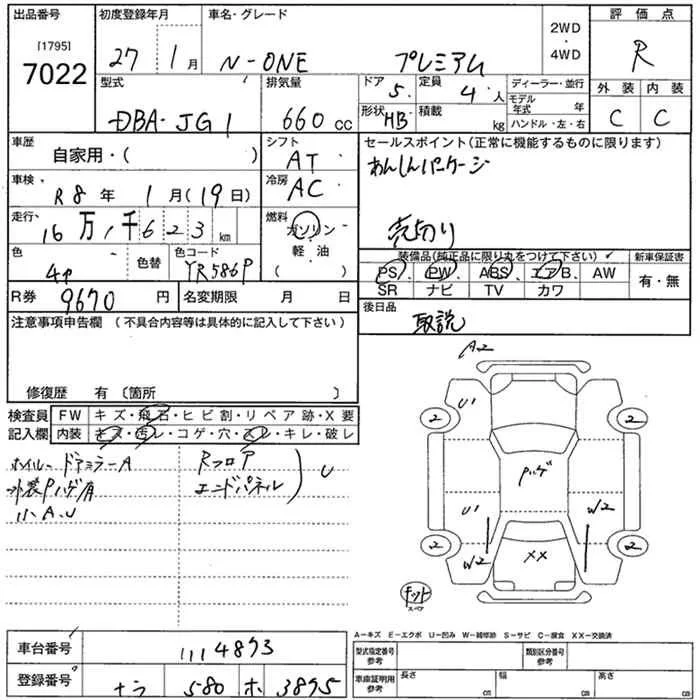 出品番号
[1795]
7022
初度登録年月
27 1月
車名・グレード
N-ONE プレミアム
2WD
・
4WD
評価点
R
外装 内装
C C
型式
DBA-JG1
排気量
660cc
ドア 5
定員 4人
形状 HB
積載 kg
ディーラー・並行
モデル年式 年
ハンドル・左・右
車歴
自家用・( )
シフト
AT
セールスポイント(正常に機能するものに限ります)
あんしんパッケージ
売切り
車検
R8年 1月(19日)
冷房
AC
走行
16万1千623km
燃料
ガソリン・
軽油
( )
色
色替
色コード
YR586P
装備品(純正品に限り丸をつけて下さい)
PS PW ABS エアB AW
SR ナビ TV カワ
新車保証書
有・無
R券 9670円
名変期限 月 日
後日品
取説
注意事項申告欄(不具合内容等は具体的に記入して下さい)
修復歴 有〔箇所 〕
検査員
記入欄
FW キズ・飛石・ヒビ割・リペア跡・X要
内装 キズ・汚レ・コゲ・穴・スレ・キレ・破レ
ホイルー ドアミラーA
外装Pハゲ有
小A.U
Rフロア
エンドパネル
U
A2
U1
2
2
Pハゲ
U1
W2
2
W2
XX
2
キット
スペア
A-キズ E-エクボ U-凹み W-補修跡 S-サビ C-腐食 XX-交換済
車台番号
1114893
型式指定番号
参考
類別区分番号
参考
登録番号
ナラ 580 ホ 3895
車庫証明用
参考
長さ cm
幅 cm
高さ cm